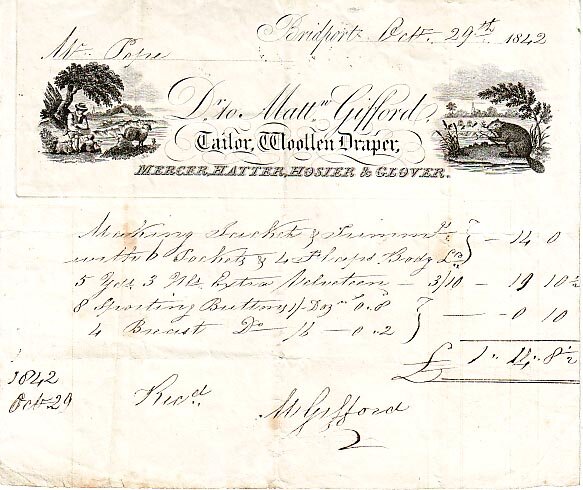 Bridport Octr. 29st 1842
Mr. Pope
Dr. to Mattw. Gifford,
Tailor, Woollen Draper,
MERCER, HATTER, HOSIER & GLOVER.
Making Jacket & Trimmgs.
with 6 Pockets & 4 Flaps Body Lg. } — 14 0
5 Yds. 3 Nls. Extra Velveteen — 3/10 — 19 10½
8 Sporting Buttons 1/- Dozn 0.8
4 Breast Do /6 — 0.2 } — 0 10
£ 1 " 14 " 8½
1842
Oct. 29 Recd. M Gifford